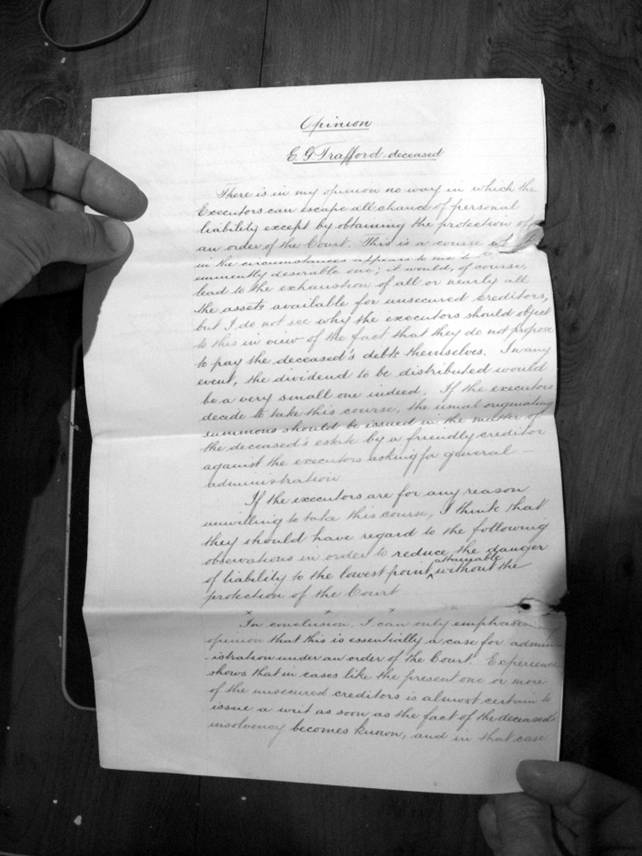 Opinion
E. G. Trafford deceased
There is in my opinion no way in which the
Executors can escape all chance of personal
liability except by obtaining the protection of
an order of the Court. This is a course
in the circumstances appears to me to
eminently desirable one; it would, of course,
lead to the exhaustion of all or nearly all
the assets available for unsecured creditors,
but I do not see why the executors should object
to this in view of the fact that they do not propose
to pay the deceased's debts themselves. In any
event, the dividend to be distributed would
be a very small one indeed. If the executors
decide to take this course, the usual originating
summons should be issued in the matter of
the deceased's estate by a friendly creditor
against the executors asking for general —
administration
If the executors are for any reason
unwilling to take this course, I think that
they should have regard to the following
observations in order to reduce the danger
of liability to the lowest point attainable without the
protection of the Court
x x x
In conclusion, I can only emphasise
opinion that this is essentially a case for admin
-istration under an order of the Court. Experience
shows that in cases like the present one or more
of the unsecured creditors is almost certain to
issue a writ as soon as the fact of the deceased's
insolvency becomes known, and in that case